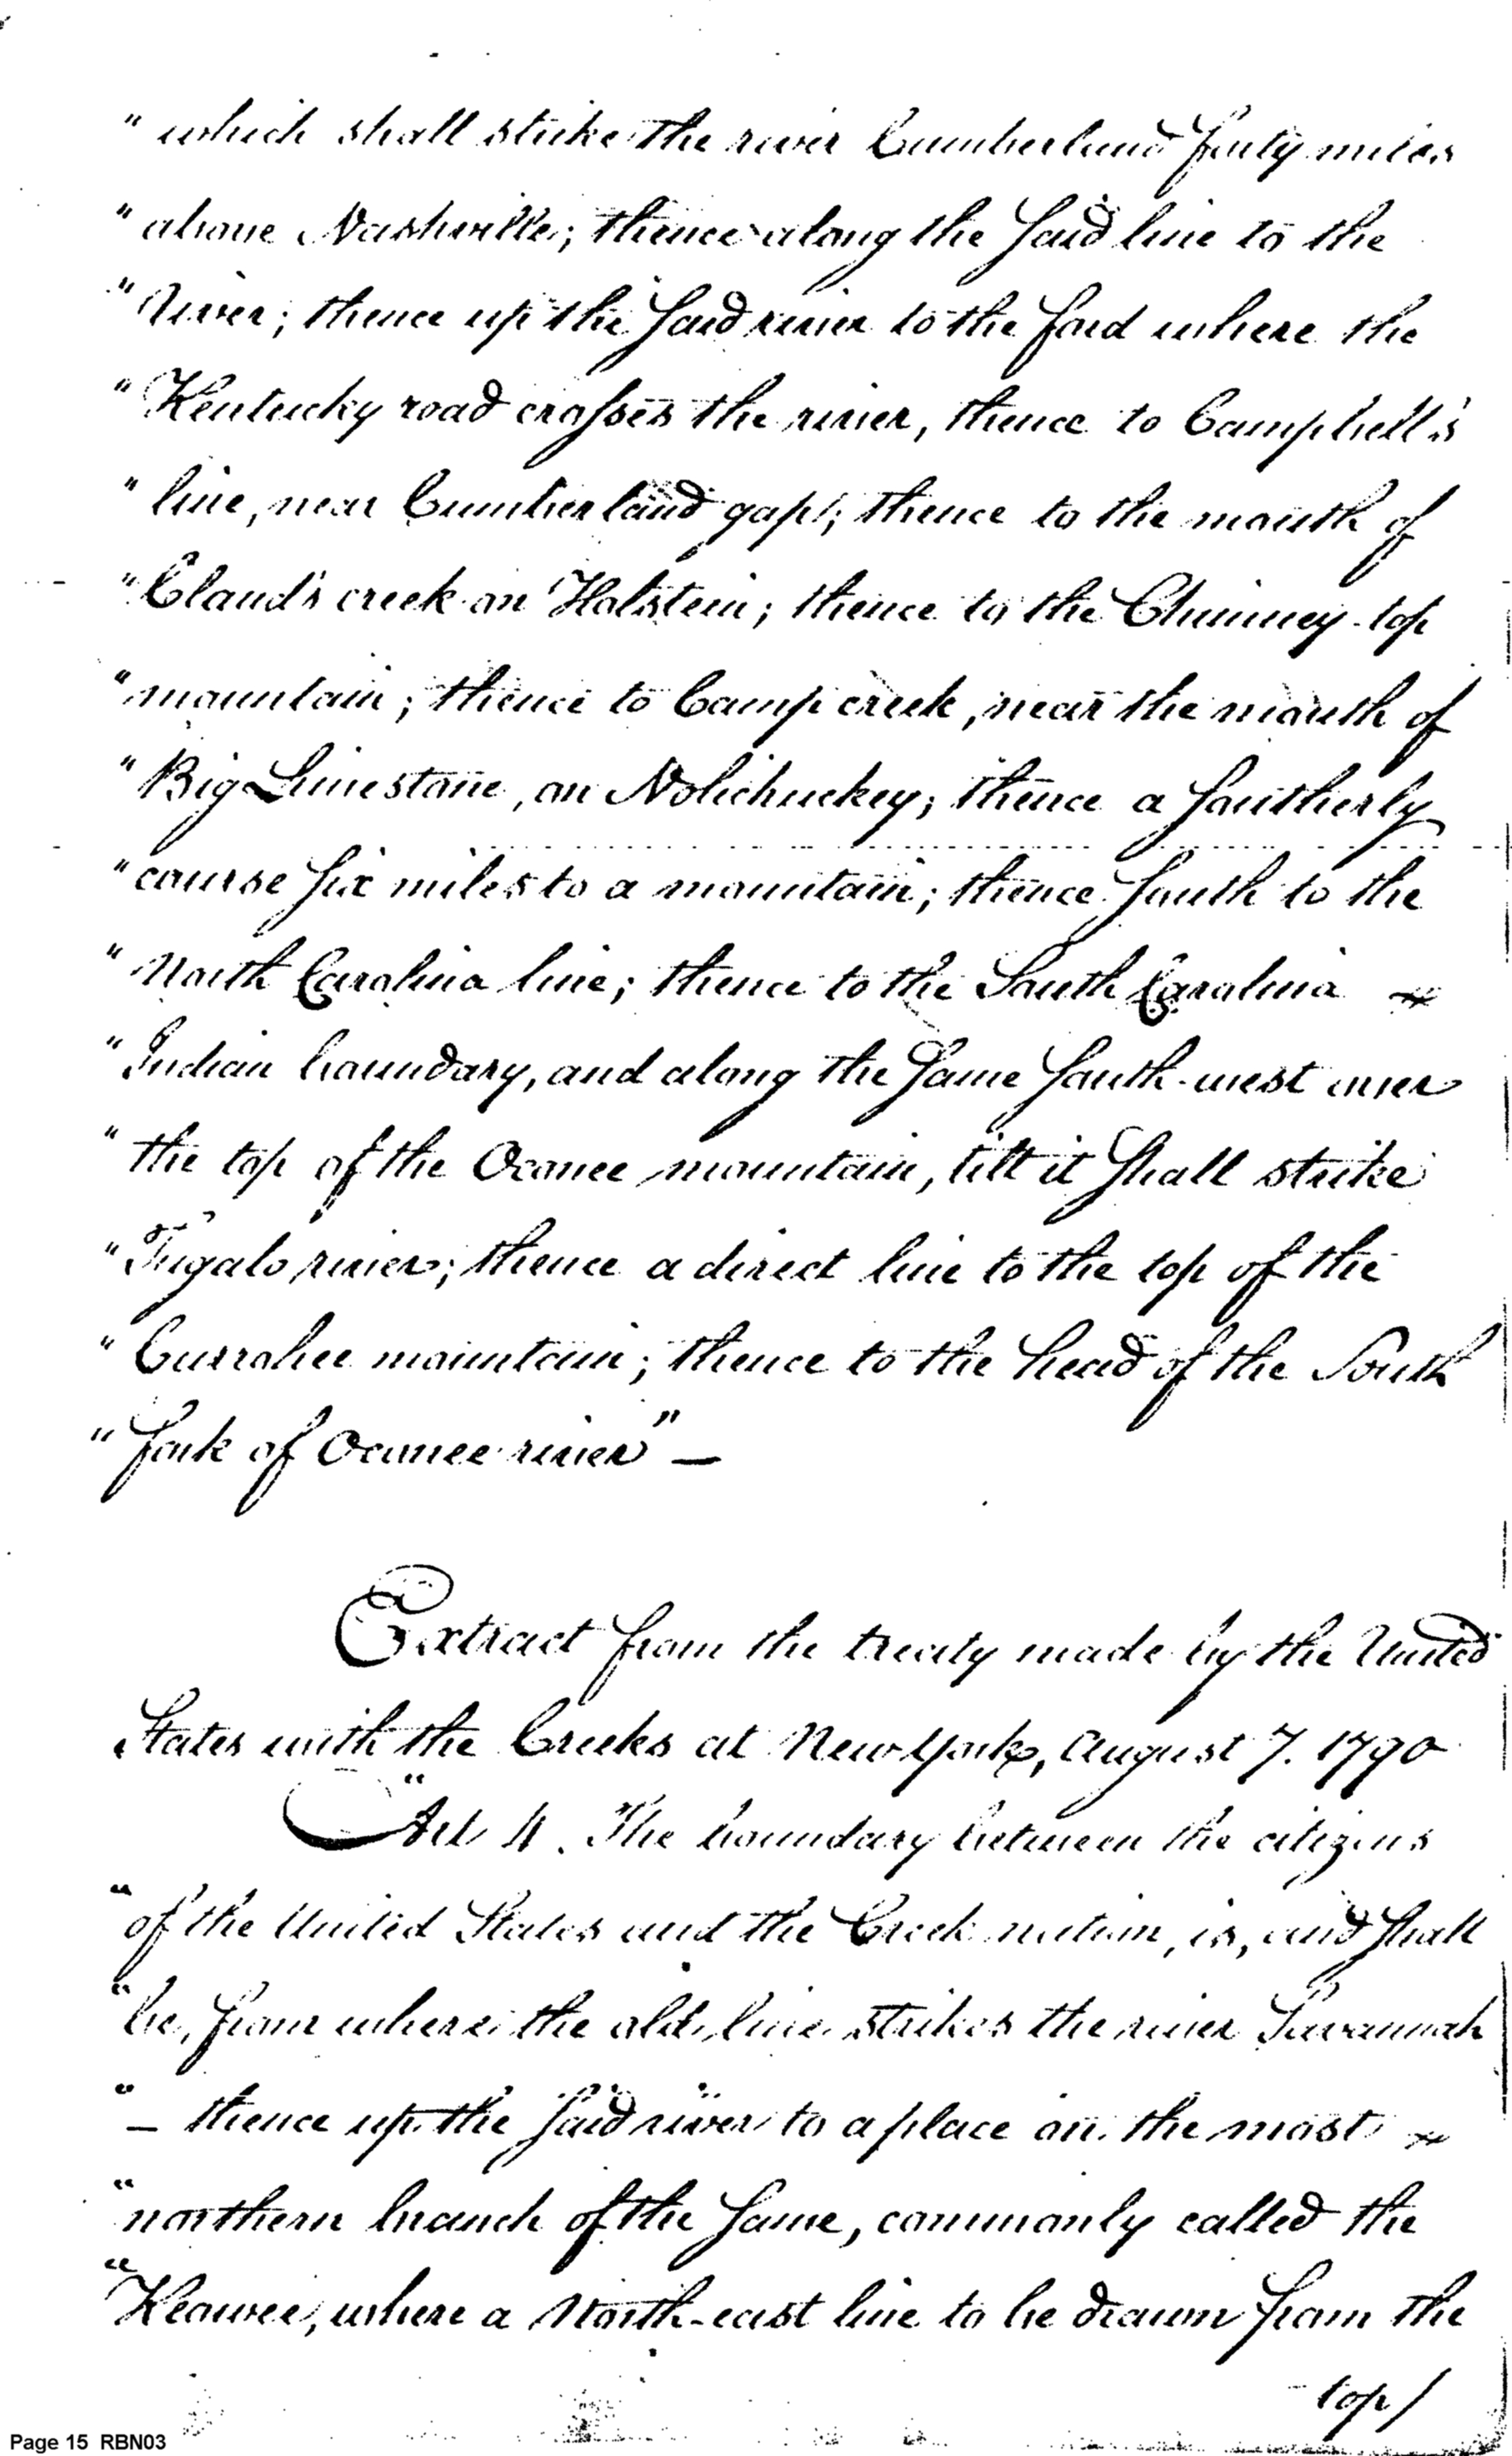 " which shall strike the river Cumberland forty miles
" above Nashville; thence along the said line to the
" River; thence up the said river to the ford where the
" Kentucky road crosses the river, thence to Campbell's
" line, near Cumberland gap; thence to the mouth of
" Claud's creek on Holstein; thence to the Chimney-top
" mountain; thence to Camp creek, near the mouth of
" Big Limestone, on Nolichuckey; thence a southerly
" course six miles to a mountain; thence south to the
" North Carolina line; thence to the South Carolina
" Indian boundary, and along the same south-west over
" the top of the Oconee mountain, till it shall strike
" Tugalo river; thence a direct line to the top of the
" Currahee mountain; thence to the head of the South
" fork of Oconee river" —
Extract from the treaty made by the United
States with the Creeks at New York, August 7. 1790
"Art 4. The boundary between the citizens
"of the United States and the Creek nation, is, and shall
"be, from where the old line strikes the river Savannah
"— thence up the said river to a place on the most
"northern branch of the same, commonly called the
"Keowee, where a North-east line to be drawn from the
top/
Page 15 RBN03